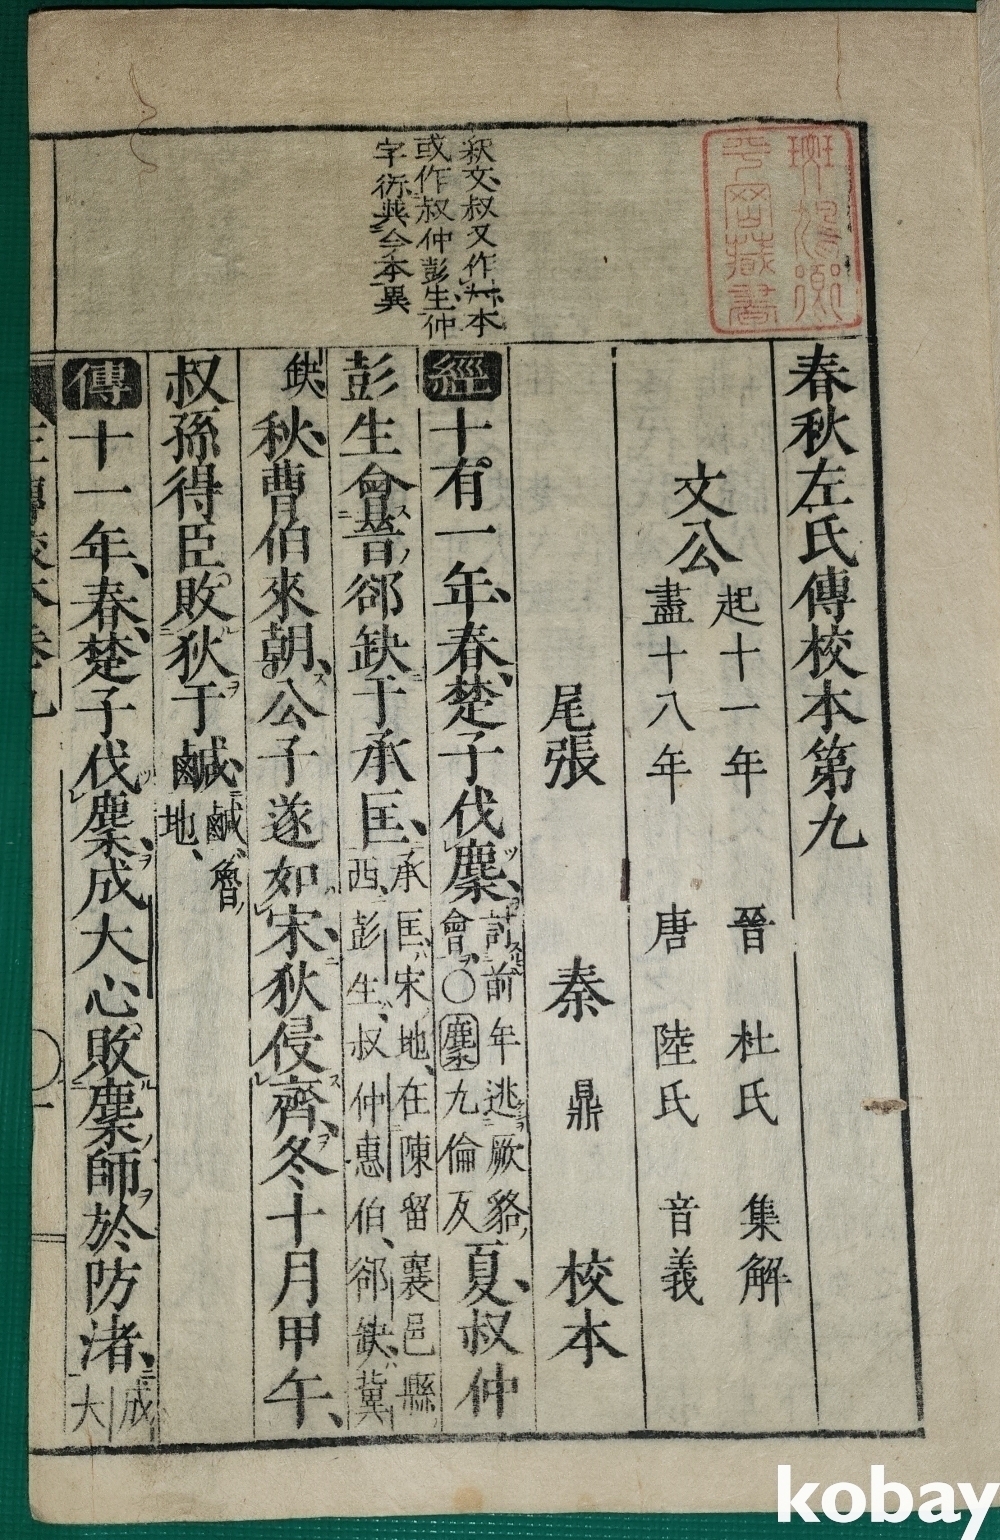 春秋左氏傳校本第九
文公
起十一年
盡十八年
晉 杜氏 集解
唐 陸氏 音義
尾張 秦 鼎 校本
釈文、叔又作𡬧本
或作叔仲彭生仲
字衍與今本異
經十有一年、春、楚子伐麇、討前年逃厥貉、會、〇麇九倫反夏、叔仲
彭生會晉郤缺于承匡、承匡、宋地、在陳留襄邑縣西、彭生、叔仲惠伯、郤缺、冀
缺秋、曹伯來朝、公子遂如宋、狄侵齊、冬十月甲午、
叔孫得臣敗狄于鹹、鹹、魯地、
傳十一年、春、楚子伐麇、成大心敗麇師於防渚、成大
kobay